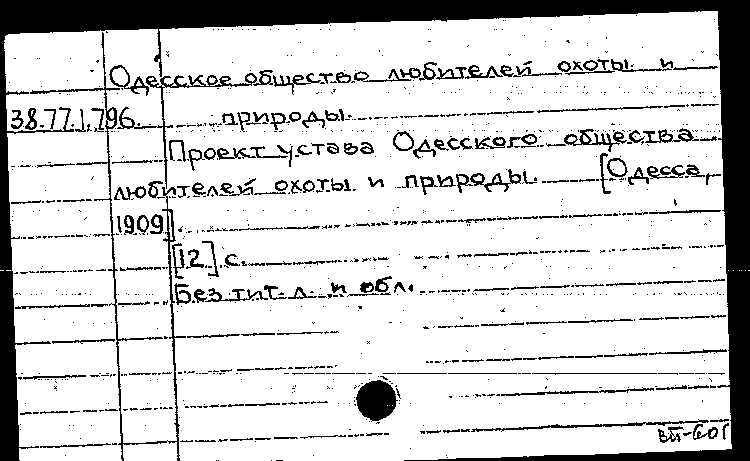 Одесское общество любителей охоты и
38.77.1.796. природы.
Проект устава Одесского общества
любителей охоты и природы. [Одесса,
1909].
[12] с.
Без тит. л. и обл.